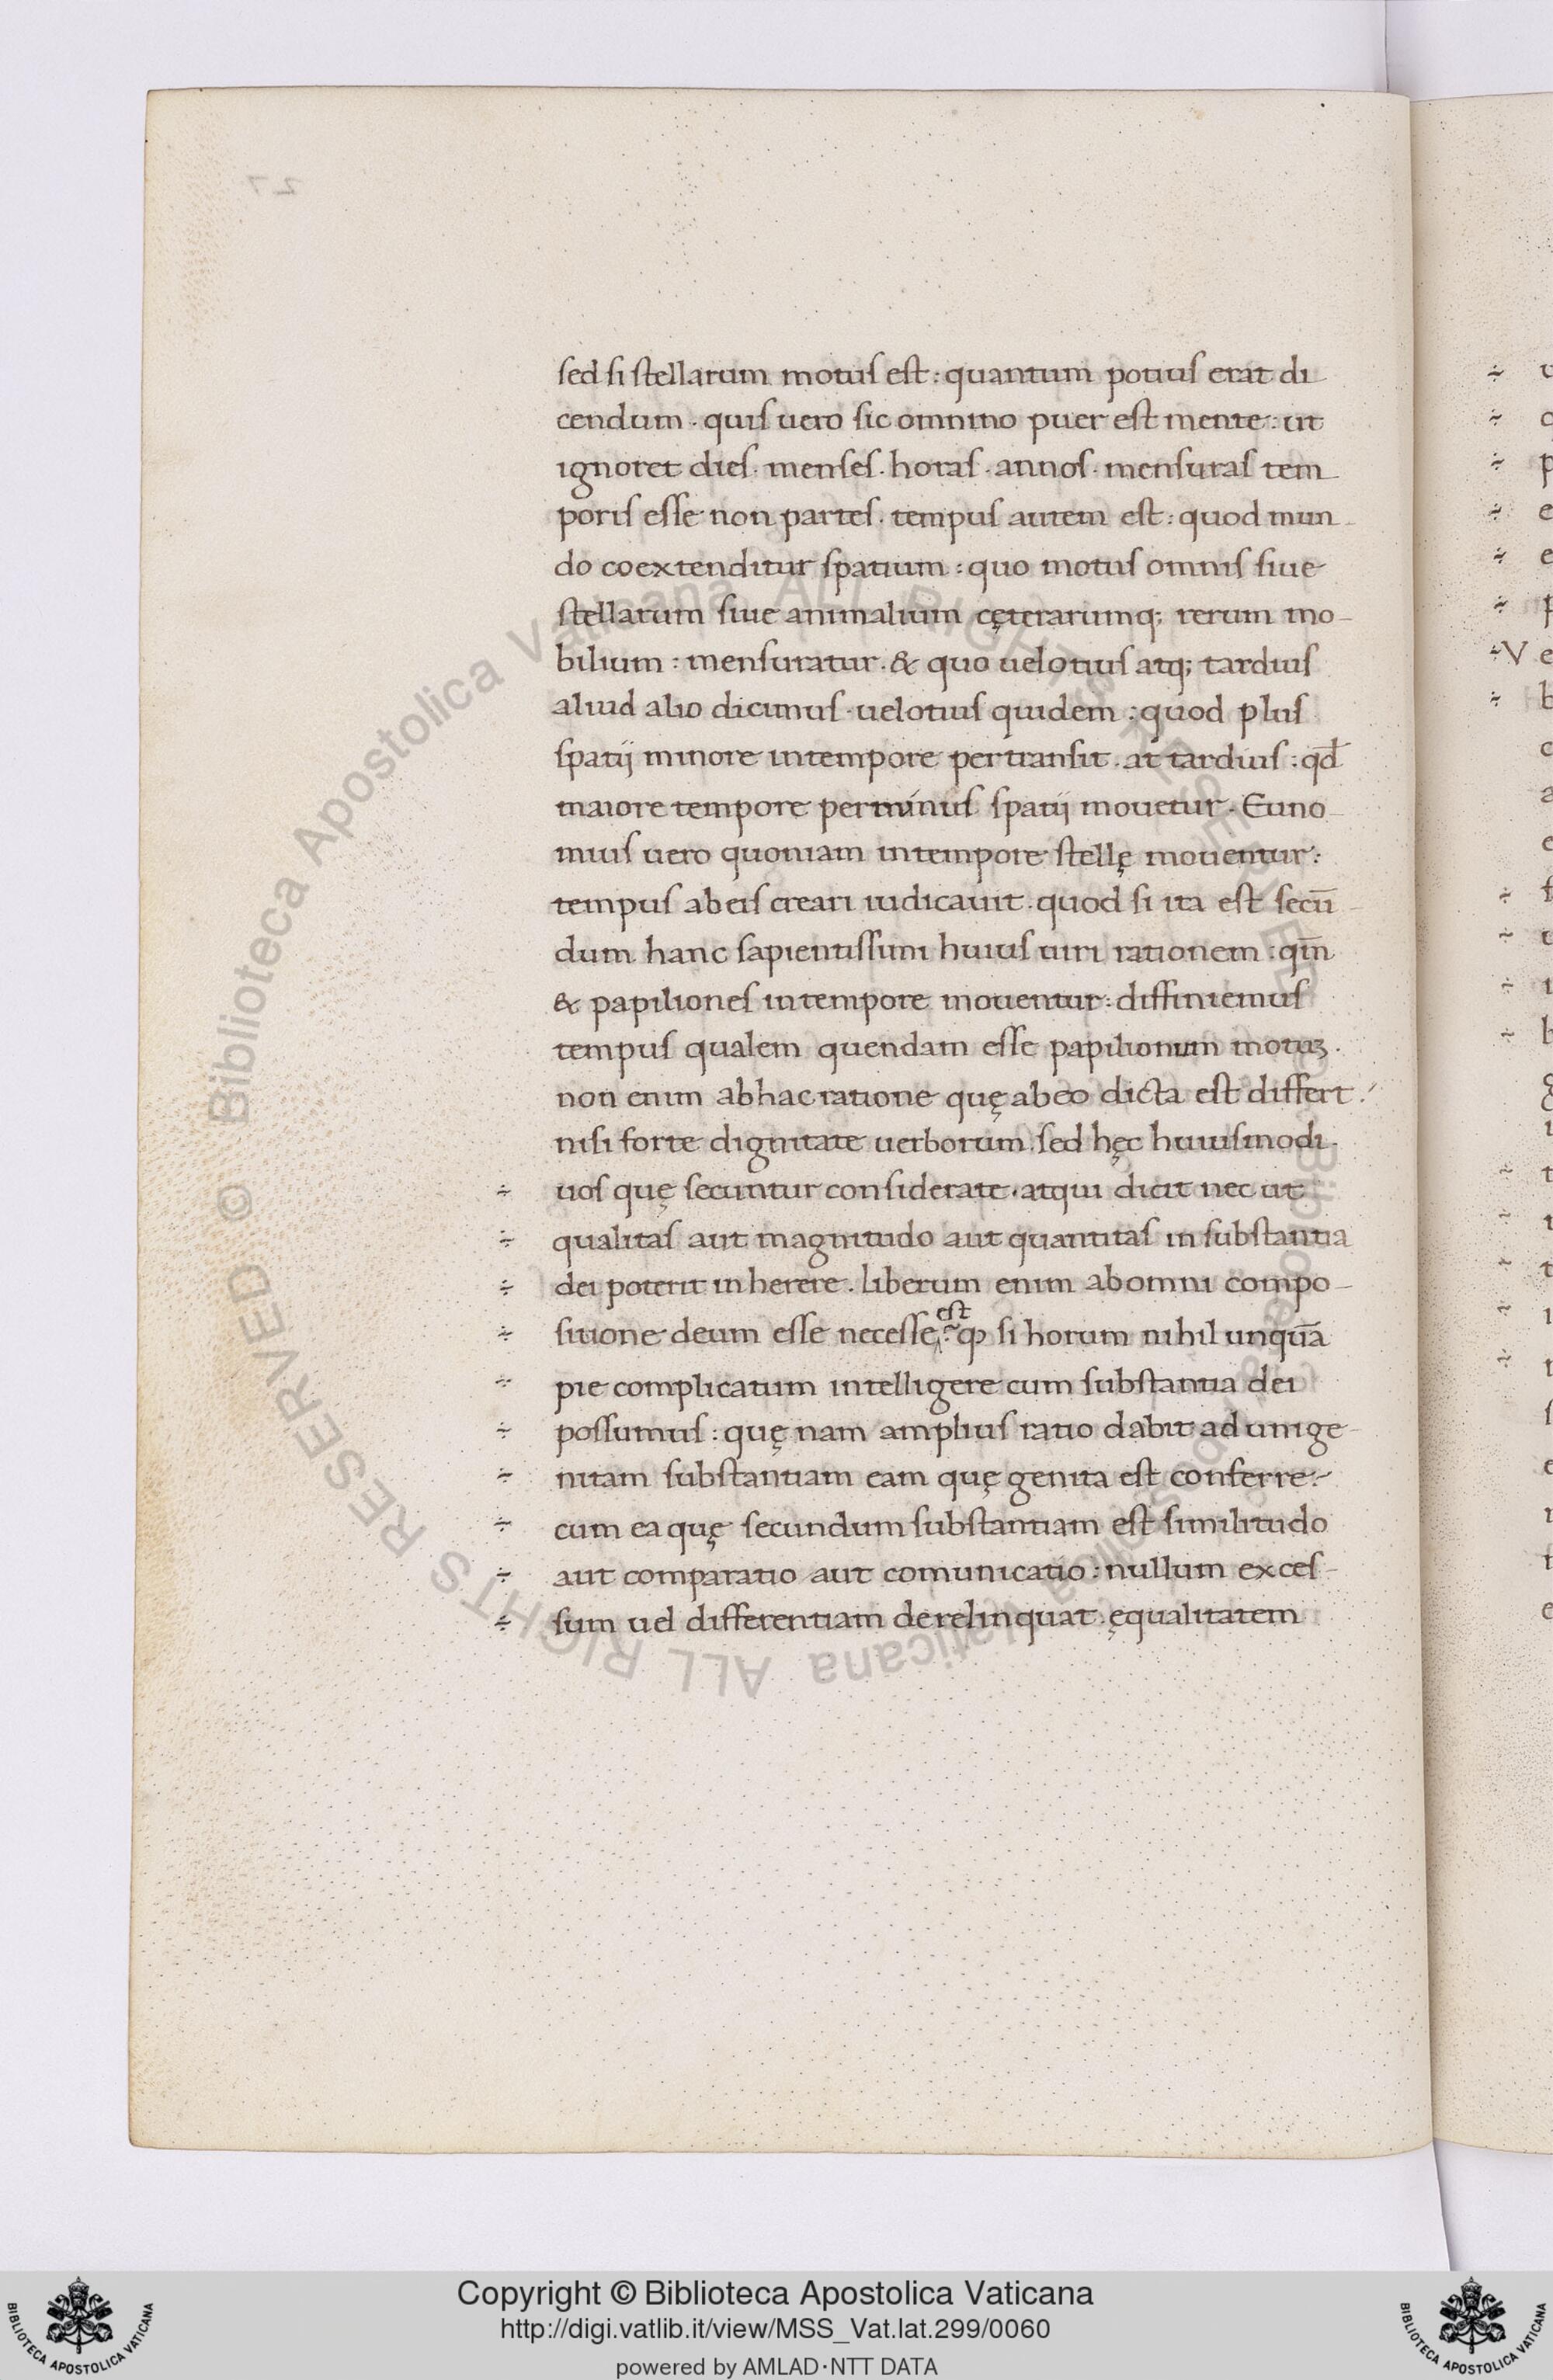 sed si stellarum motus est : quantum potius erat di
cendum . quis uero sic omnino puer est mente : ut
ignoret dies . menses . horas . annos . mensuras tem
poris esse non partes . tempus autem est : quod mun-
do coextenditur spatium : quo motus omnis siue
stellarum siue animalium cęterarumq; rerum mo-
bilium : mensuratur . & quo uelotius atq; tardius
aliud alio dicimus . uelotius quidem : quod plus
spatij minore in tempore pertransit . at tardius : qđ
maiore tempore per minus spatij mouetur . Euno-
mius uero quoniam in tempore stellę mouentur :
tempus ab eis creari iudicauit . quod si ita est secū-
dum hanc sapientissimi huius uiri rationem : qm̄
& papiliones in tempore mouentur : diffiniemus
tempus qualem quendam esse papilionum motuꝫ .
non enim ab hac ratione quę ab eo dicta est differt .
nisi forte dignitate uerborum . sed hęc huiusmodi .
÷ uos quę secuntur considerate . atqui dicit nec ut
÷ qualitas aut magnitudo aut quantitas in substantia
÷ dei poterit inherere . liberum enim ab omni compo-
est
÷ sitione deum esse necesse . qꝫ si horum nihil unquā
÷ pie complicatum intelligere cum substantia dei
÷ possumus : quę nam amplius ratio dabit ad unige-
÷ nitam substantiam eam quę genita est conferre :
÷ cum ea quę secundum substantiam est similitudo
÷ aut comparatio aut comunicatio : nullum exces-
÷ sum uel differentiam derelinquat . ęqualitatem
© Biblioteca Apostolica Vaticana ALL RIGHTS RESERVED
© Biblioteca Apostolica Vaticana ALL RIGHTS RESERVED
Copyright © Biblioteca Apostolica Vaticana
http://digi.vatlib.it/view/MSS_Vat.lat.299/0060
powered by AMLAD·NTT DATA
BIBLIOTECA APOSTOLICA VATICANA
BIBLIOTECA APOSTOLICA VATICANA